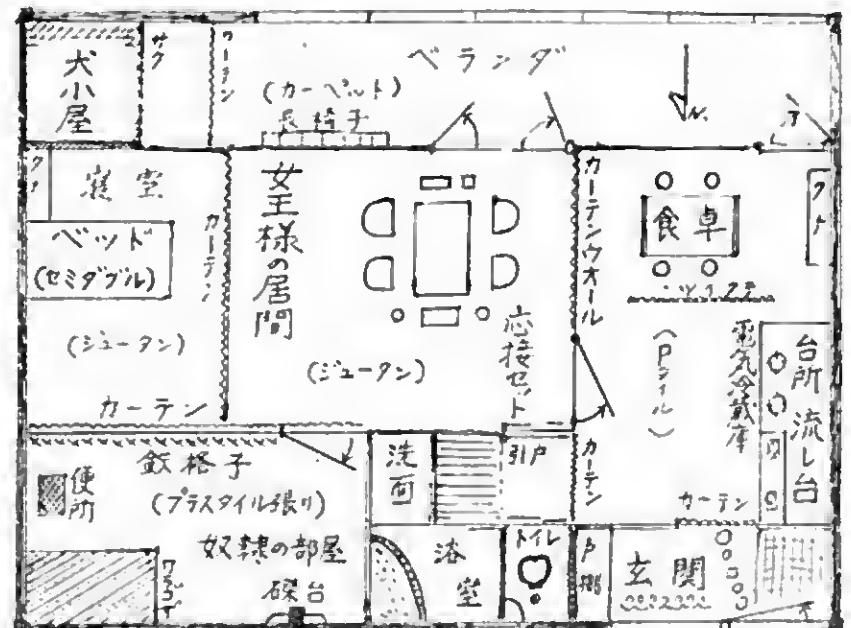 犬小屋
サク
カーテン
ベランダ
(カーペット)
長椅子
N.
寝室
ベッド
(セミダブル)
カーテン
(ジュータン)
カーテン
女王様の居間
(ジュータン)
応接セット
カーテンウオール
食卓
(Pタイル)
電気冷蔵庫
台所流し台
鉄格子
便所
(プラスタイル張り)
奴隷の部屋
磔台
洗面
引戸
カーテン
浴室
トイレ
戸棚
玄関
カーテン